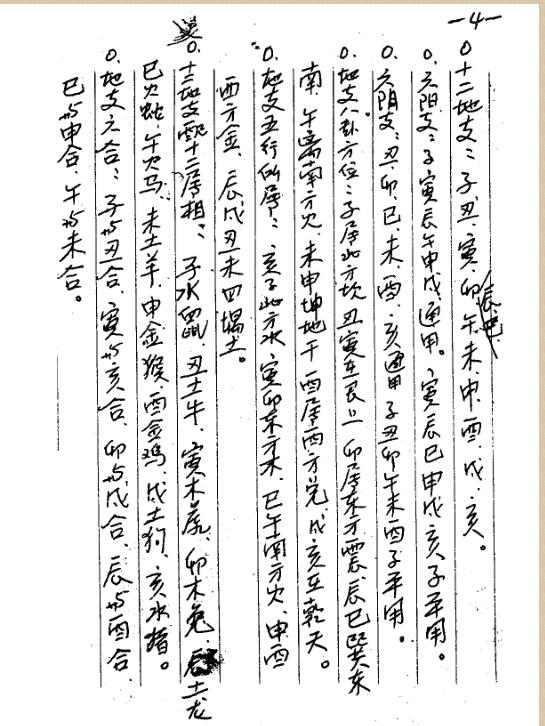 -4-
0十二地支：子、丑、寅、卯、辰、巳、午、未、申、酉、戌、亥。
0.六阳支：子寅辰午申戌通用。寅辰巳申戌亥子平用。
0.六阴支：丑、卯、巳、未、酉、亥通用 子丑卯午未酉子平用。
0.地支八卦方位：子居北方坎 丑寅在艮上 卯居东方震 辰巳巽东
南、午离南方火、未申坤地干 酉居西方兑、戌亥在乾天。
0.地支五行所属：亥子北方水 寅卯东方木、巳午南方火、申酉
西方金、辰戌丑未四塌土。
0.十二地支配十二属相：子水鼠 丑土牛、寅木虎、卯木兔、辰土龙
巳火蛇、午火马、未土羊、申金猴、酉金鸡、戌土狗、亥水猪。
0.地支六合：子与丑合、寅与亥合、卯与戌合、辰与酉合
巳与申合、午与未合。